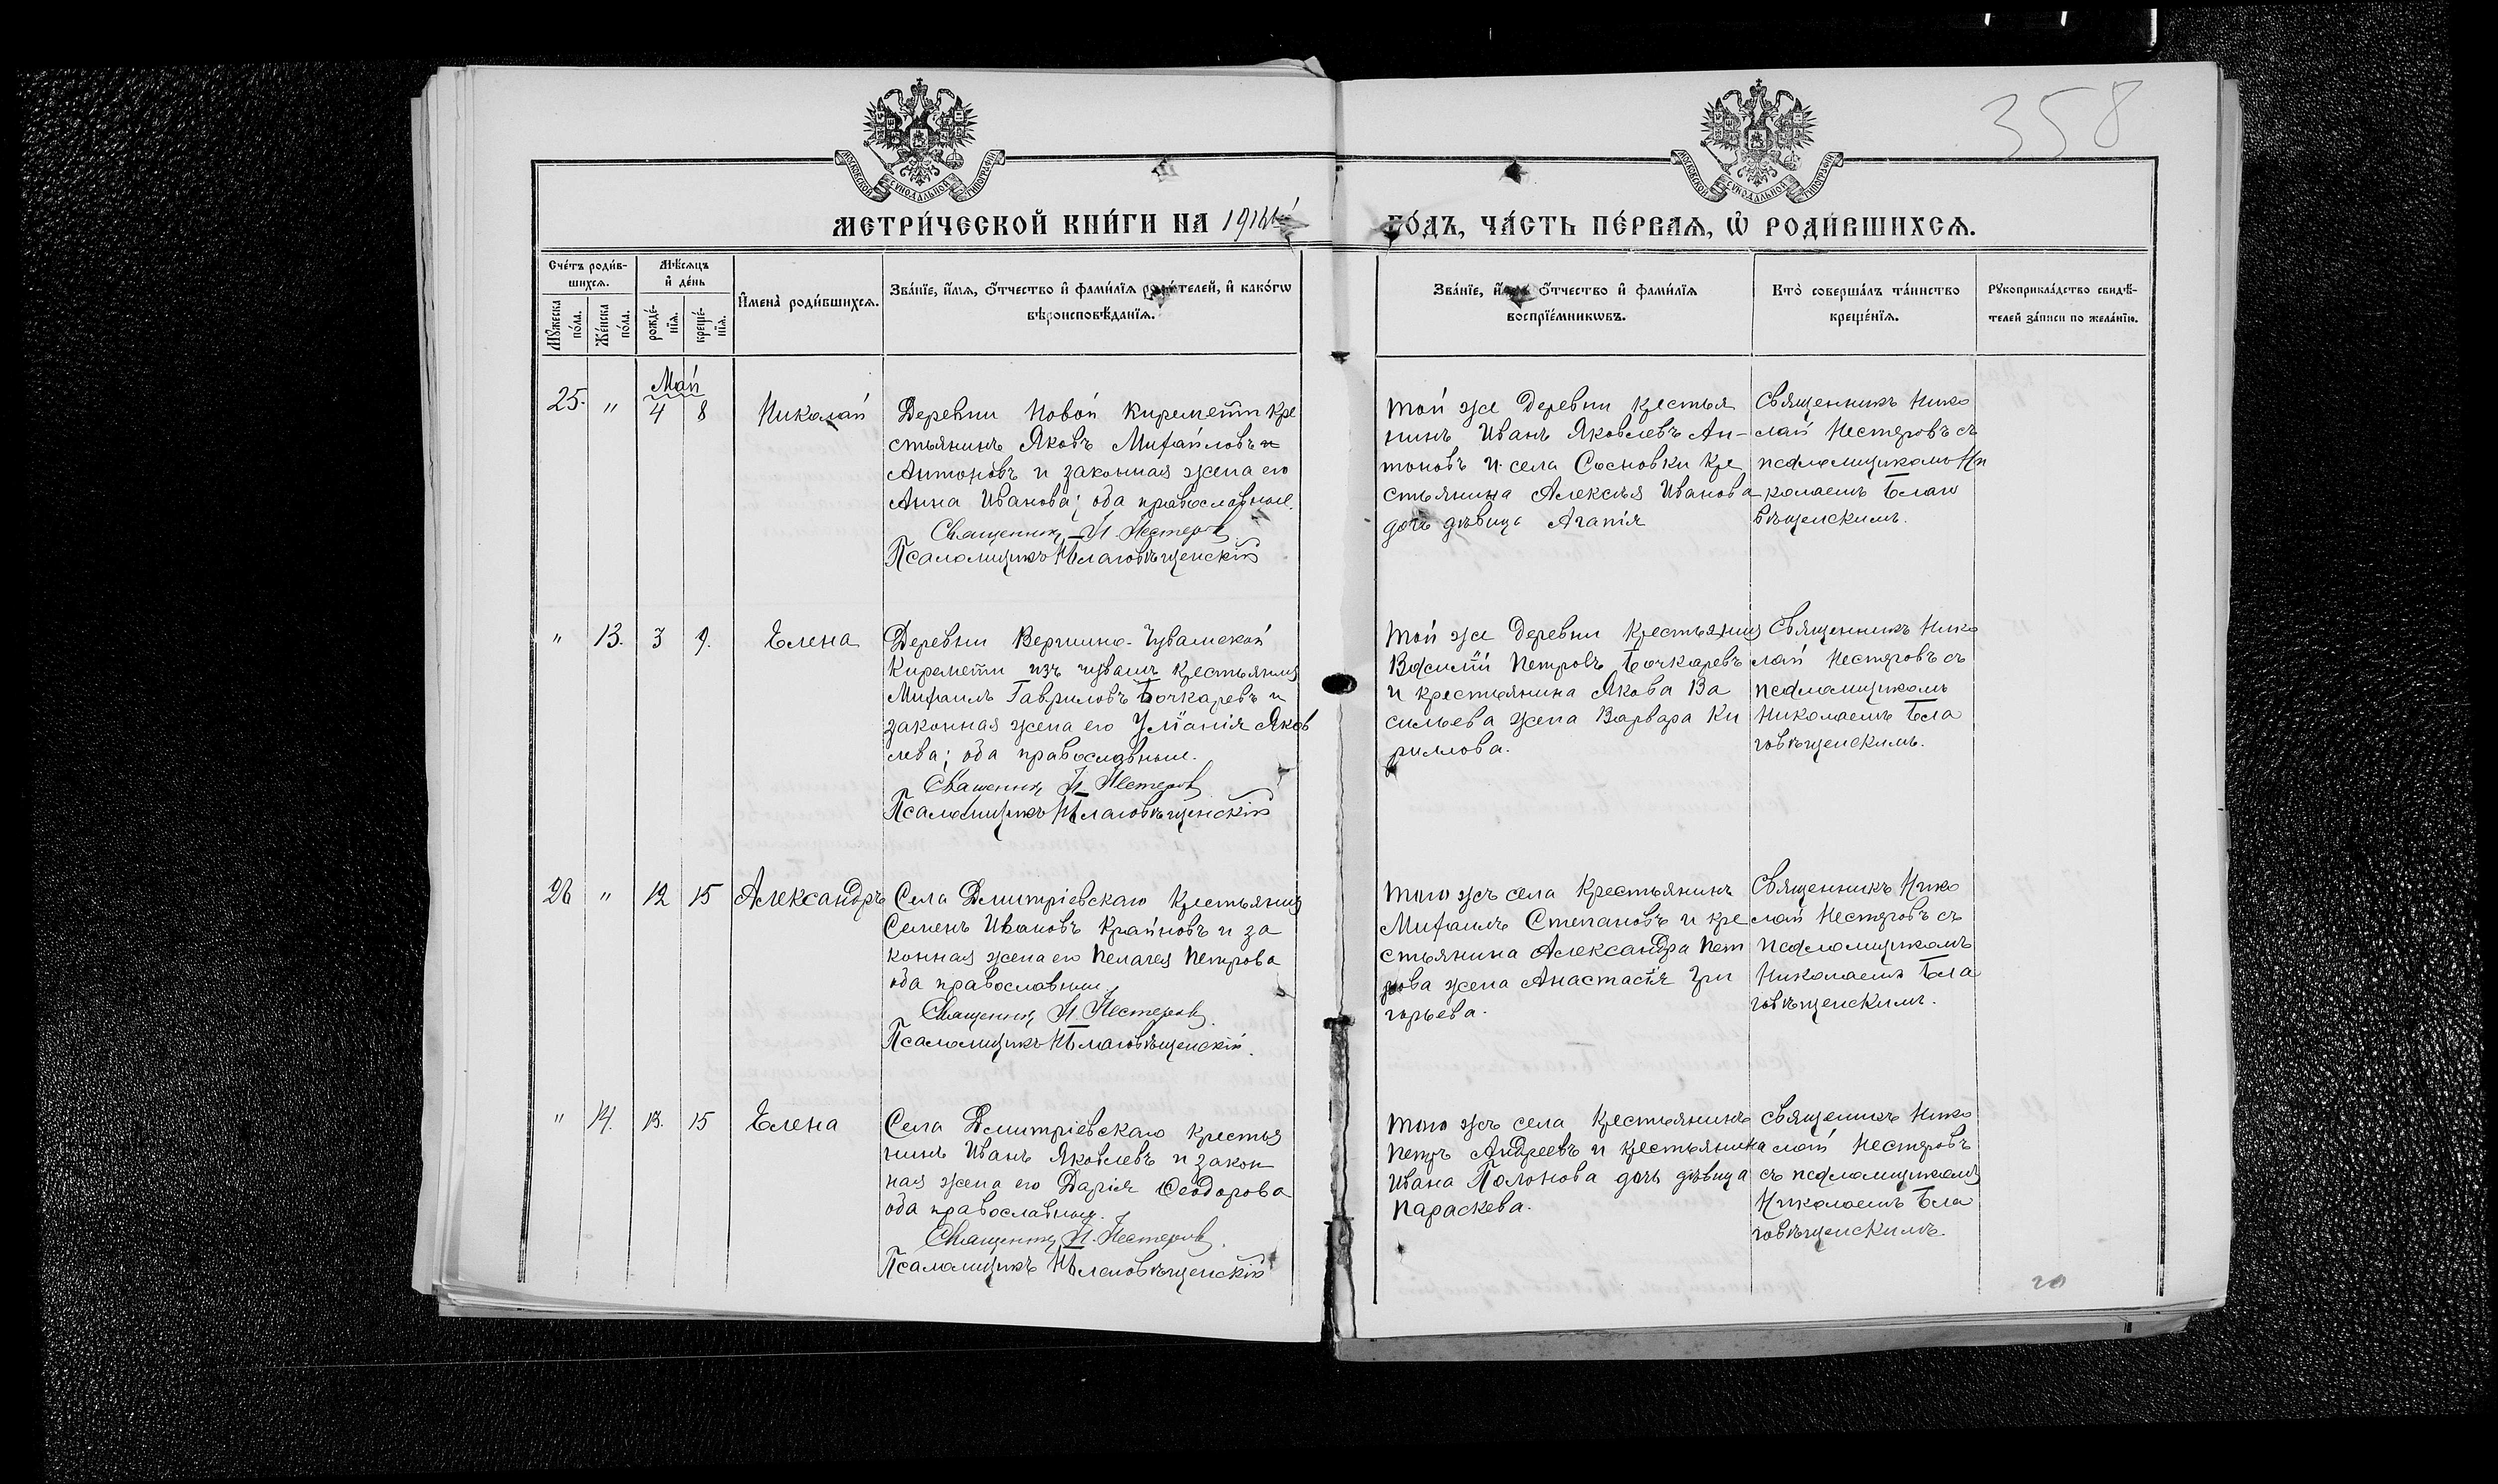 358
МОСКОВСКОЙ СУНОДАЛЬНОЙ ТИПОГРАФІИ
МОСКОВСКОЙ СУНОДАЛЬНОЙ ТИПОГРАФІИ
МЕТРИ́ЧЕСКОЙ КНИ́ГИ НА
ГО́ДЪ, ЧА́СТЬ ПЕ́РВАѦ, Ѡ҆ РОДИ́ВШИХСѦ.
Сче́тъ роди́в-
шихсѧ.
Мꙋ́жеска
по́ла.
Же́нска
по́ла.
Мѣ́сѧцъ
и҆ де́нь
рожде́-
нїѧ.
креще́-
нїѧ.
И҆мена̀ роди́вшихсѧ.
Зва́нїе, и҆́мѧ, ѻ҆́тчество и҆ фами́лїѧ роди́телей, и҆ како́гѡ
вѣроисповѣ́данїѧ.
Зва́нїе, и҆́мѧ, ѻ҆́тчество и҆ фами́лїѧ
воспрїе́мникѡвъ.
Кто̀ соверша́лъ та́инство
креще́нїѧ.
Рꙋкоприкла́дство свидѣ́-
телей за́писи по жела́нїю.
Май
25. " 4 8 Николай
Деревни Новой Киремети кре
стьянинъ Яковъ Михайловъ
Антоновъ и законная жена его
Анна Иванова; оба православные.
Священникъ Н. Нестеровъ
Псаломщикъ Н Благовѣщенскій
Той же деревни крестья
нинъ Иванъ Яковлевъ Ан-
тоновъ и села Сосновки кре
стьянина Алексѣя Иванова
дочь дѣвица Агапія
Священникъ Нико
лай Нестеровъ съ
псаломщикомъ Ни
колаемъ Благо
вѣщенскимъ.
" 13. 3 9. Елена
Деревни Вершино-Чувашской
Киремети изъ чувашъ крестьянинъ
Михаилъ Гавриловъ Бочкаревъ и
законная жена его Уліанія Яков
лева; оба православные.
Священникъ Н. Нестеровъ
Псаломщикъ Н Благовѣщенскій
Той же деревни крестьянинъ
Василій Петровъ Бочкаревъ
и крестьянина Якова Ва
сильева жена Варвара Ки
риллова.
Священникъ Нико
лай Нестеровъ съ
псаломщикомъ
Николаемъ Бла
говѣщенскимъ.
26 " 12 15 Александръ
Села Дмитріевскаго крестьянинъ
Семенъ Ивановъ Крайновъ и за
конная жена его Пелагея Петрова
оба православные.
Священникъ Н. Нестеровъ.
Псаломщикъ Н Благовѣщенскій.
Того жъ села крестьянинъ
Михаилъ Степановъ и кре
стьянина Александра Пет
рова жена Анастасія Гри
горьева.
Священникъ Нико
лай Нестеровъ съ
псаломщикомъ
Николаемъ Бла
говѣщенскимъ.
" 14. 13. 15 Елена
Села Дмитріевскаго крестья
нинъ Иванъ Яковлевъ и закон
ная жена его Дарія Ѳеодорова
оба православные.
Священникъ Н. Нестеровъ.
Псаломщикъ Н Благовѣщенскій
Того жъ села крестьянинъ
Петръ Андреевъ и крестьянина
Ивана Полонова дочь дѣвица
Параскева.
Священникъ Нико
лай Нестеровъ
съ псаломщикомъ
Николаемъ Бла
говѣщенскимъ.
20